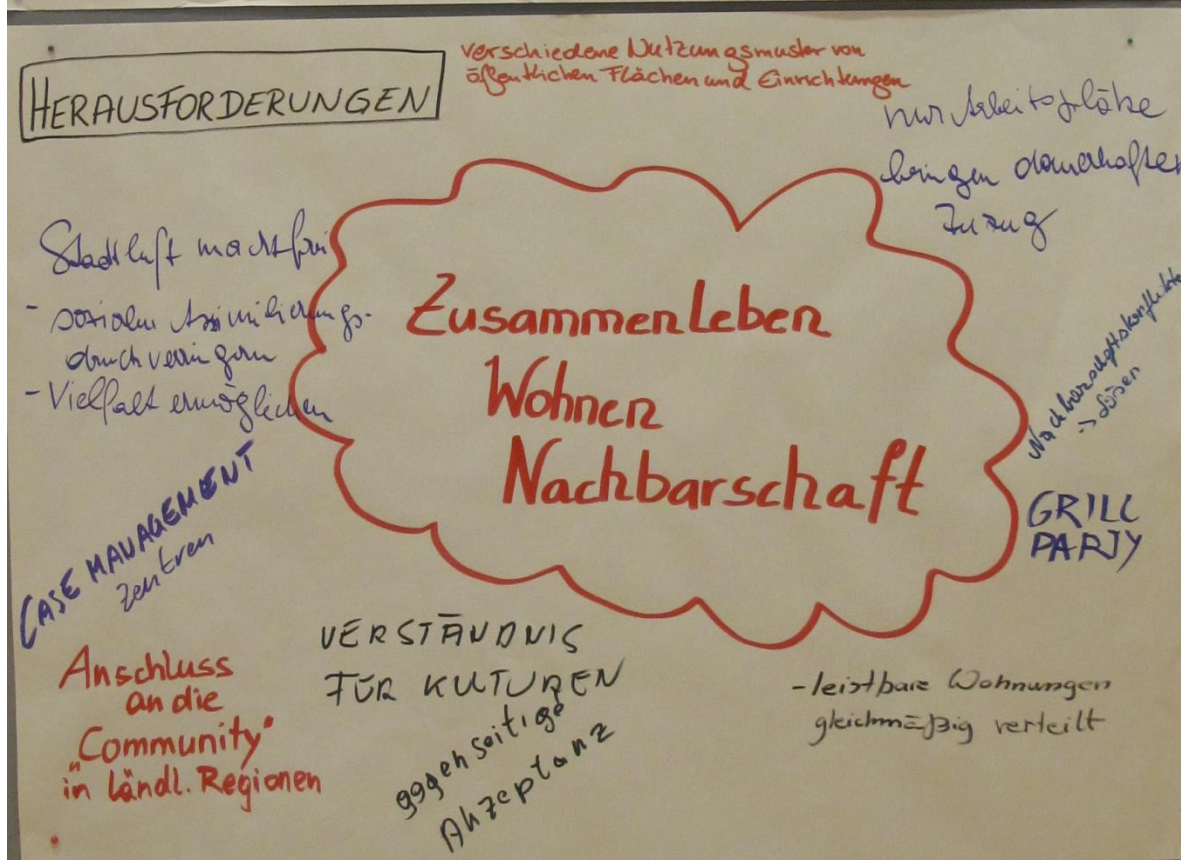 HERAUSFORDERUNGEN
verschiedene Nutzungsmuster von
öffentlichen Flächen und Einrichtungen
nur Arbeitsplätze
bringen dauerhaften
Zuzug
Stadtluft macht frei
- sozialen Assimilierungs-
druck verringern
- Vielfalt ermöglichen
Zusammenleben
Wohnen
Nachbarschaft
Nachbarschaftskonflikte
-> lösen
GRILL
PARTY
CASE MANAGEMENT
zentren
Anschluss
an die
„Community“
in ländl. Regionen
VERSTÄNDNIS
FÜR KULTUREN
gegenseitige
Akzeptanz
- leistbare Wohnungen
gleichmäßig verteilt